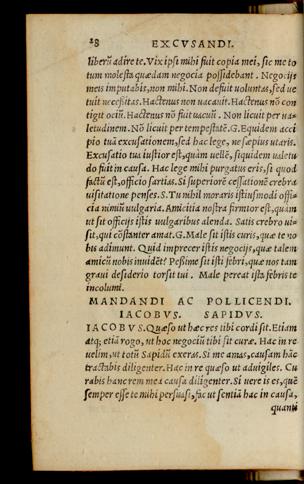 28 EXCVSANDI.
liberū adire te. Vix ipsi mihi fuit copia mei, sic me to
tum molesta quædam negocia possidebant. Negocijs
meis imputabis, non mihi. Non defuit voluntas, sed ve
tuit necessitas. Hactenus non vacauit. Hactenus nō con
tigit ociū. Hactenus nō fuit vacuū. Non licuit per va-
letudinem. Nō licuit per tempestatē. G. Equidem acci
pio tuā excusationem, sed hac lege, ne sæpius vtaris.
Excusatio tua iustior est, quàm vellē, siquidem valetu
do fuit in causa. Hac lege mihi purgatus eris, si quod
factū est, officio sartias. Si superiorē cessationē crebra
visitatione penses. S. Tu nihil moraris istiusmodi offi-
cia nimiū vulgaria. Amicitia nostra firmior est, quàm
vt sit officijs istis vulgaribus alenda. Satis crebro vi-
sit, qui cōstanter amat. G. Male sit istis curis, quæ te no
bis adimunt. Quid imprecer istis negocijs, quæ talem
amicū nobis inuidēt? Pessime sit isti febri, quæ nos tam
graui desiderio torsit tui. Male pereat ista febris te
incolumi.
MANDANDI AC POLLICENDI.
IACOBVS. SAPIDVS.
IACOBVS. Quæso vt hæc res tibi cordi sit. Etiam
atq; etiā rogo, vt hoc negociū tibi sit curæ. Hac in re
velim, vt totū Sapidū exeras. Si me amas, causam hāc
tractabis diligenter. Hac in re quæso vt aduigiles. Cu
rabis hanc rem mea causa diligenter. Si vere is es, quē
semper esse te mihi persuasi, fac vt sentiā hac in causa,
quanti